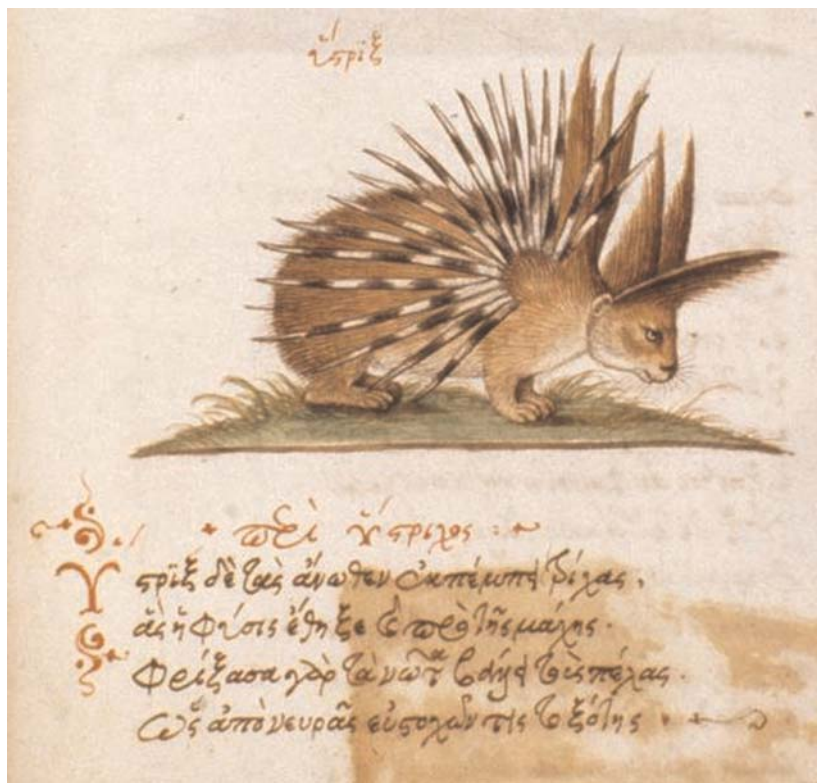 ὕστριξ
περὶ ὕστριχος :~
Ὕστριξ δὲ τὰς ἄνωθεν ἐκπέμπει τρίχας,
ἃς ἡ φύσις ἔθηξε καὶ πρὸ τῆς μάχης·
Φρίξασα γὰρ τὰ νῶτα τοὺς πέλας·
Ὡς ἀπὸ νευρᾶς εὐστοχῶν τις τοξότης